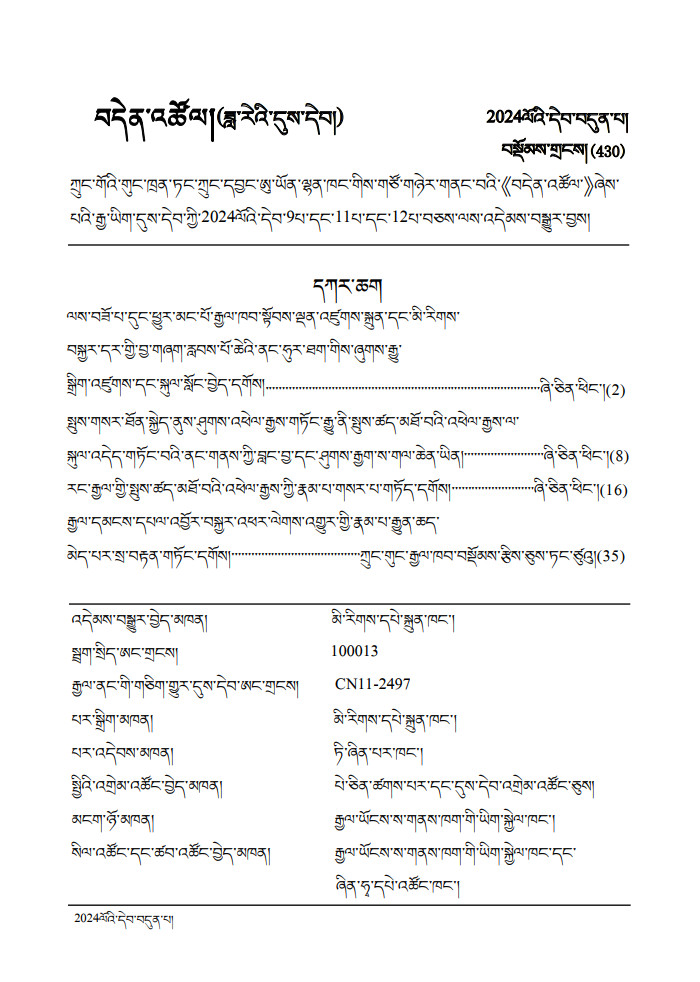 བདེན་འཚོལ། (ཟླ་རེའི་དུས་དེབ།)
2024ལོའི་དེབ་བདུན་པ།
བསྡོམས་གྲངས། (430)
ཀྲུང་གོའི་གུང་ཁྲན་ཏང་ཀྲུང་དབྱང་ཨུ་ཡོན་ལྷན་ཁང་གིས་གཙོ་གཉེར་གནང་བའི་《བདེན་འཚོལ་》ཞེས་
པའི་རྒྱ་ཡིག་དུས་དེབ་ཀྱི་2024ལོའི་དེབ་9པ་དང་11པ་དང་12པ་བཅས་ལས་འདེམས་བསྒྱུར་བྱས།
དཀར་ཆག
ལས་བཟོ་པ་དུང་ཕྱུར་མང་པོ་རྒྱལ་ཁབ་སྟོབས་ལྡན་འཛུགས་སྐྲུན་དང་མི་རིགས་
བསྐྱར་དར་གྱི་བྱ་གཞག་རླབས་པོ་ཆེའི་ནང་ཧུར་ཐག་གིས་ཞུགས་རྒྱུ་
སྒྲིག་འཛུགས་དང་སྐུལ་སློང་བྱེད་དགོས།........................ཞི་ཅིན་ཕིང་།(2)
སྤུས་གསར་ཐོན་སྐྱེད་ནུས་ཤུགས་འཕེལ་རྒྱས་གཏོང་རྒྱུ་ནི་སྤུས་ཚད་མཐོ་བའི་འཕེལ་རྒྱས་ལ་
སྐུལ་འདེད་གཏོང་བའི་ནང་གནས་ཀྱི་བླང་བྱ་དང་ཤུགས་རྒྱག་ས་གལ་ཆེན་ཡིན།........................ཞི་ཅིན་ཕིང་།(8)
རང་རྒྱལ་གྱི་སྤུས་ཚད་མཐོ་བའི་འཕེལ་རྒྱས་ཀྱི་རྣམ་པ་གསར་པ་གཏོད་དགོས།........................ཞི་ཅིན་ཕིང་།(16)
རྒྱལ་དམངས་དཔལ་འབྱོར་བསྐྱར་འཕར་ལེགས་འགྱུར་གྱི་རྣམ་པ་རྒྱུན་ཆད་
མེད་པར་སྲ་བརྟན་གཏོང་དགོས།........................ཀྲུང་གུང་རྒྱལ་ཁབ་བསྡོམས་རྩིས་ཅུས་ཏང་ཙུའུ།(35)
འདེམས་བསྒྱུར་བྱེད་མཁན། མི་རིགས་དཔེ་སྐྲུན་ཁང་།
སྦྲག་སྲིད་ཨང་གྲངས། 100013
རྒྱལ་ནང་གི་གཅིག་གྱུར་དུས་དེབ་ཨང་གྲངས། CN11-2497
པར་སྒྲིག་མཁན། མི་རིགས་དཔེ་སྐྲུན་ཁང་།
པར་འདེབས་མཁན། ཏི་ཞིན་པར་ཁང་།
སྤྱིའི་འགྲེམ་འཚོང་བྱེད་མཁན། པེ་ཅིན་ཚགས་པར་དང་དུས་དེབ་འགྲེམ་འཚོང་ཅུས།
མངག་ཉོ་མཁན། རྒྱལ་ཡོངས་ས་གནས་ཁག་གི་ཡིག་སྐྱེལ་ཁང་།
སིལ་འཚོང་དང་ཚབ་འཚོང་བྱེད་མཁན། རྒྱལ་ཡོངས་ས་གནས་ཁག་གི་ཡིག་སྐྱེལ་ཁང་དང་
ཞིན་ཧྭ་དཔེ་འཚོང་ཁང་།
2024ལོའི་དེབ་བདུན་པ།